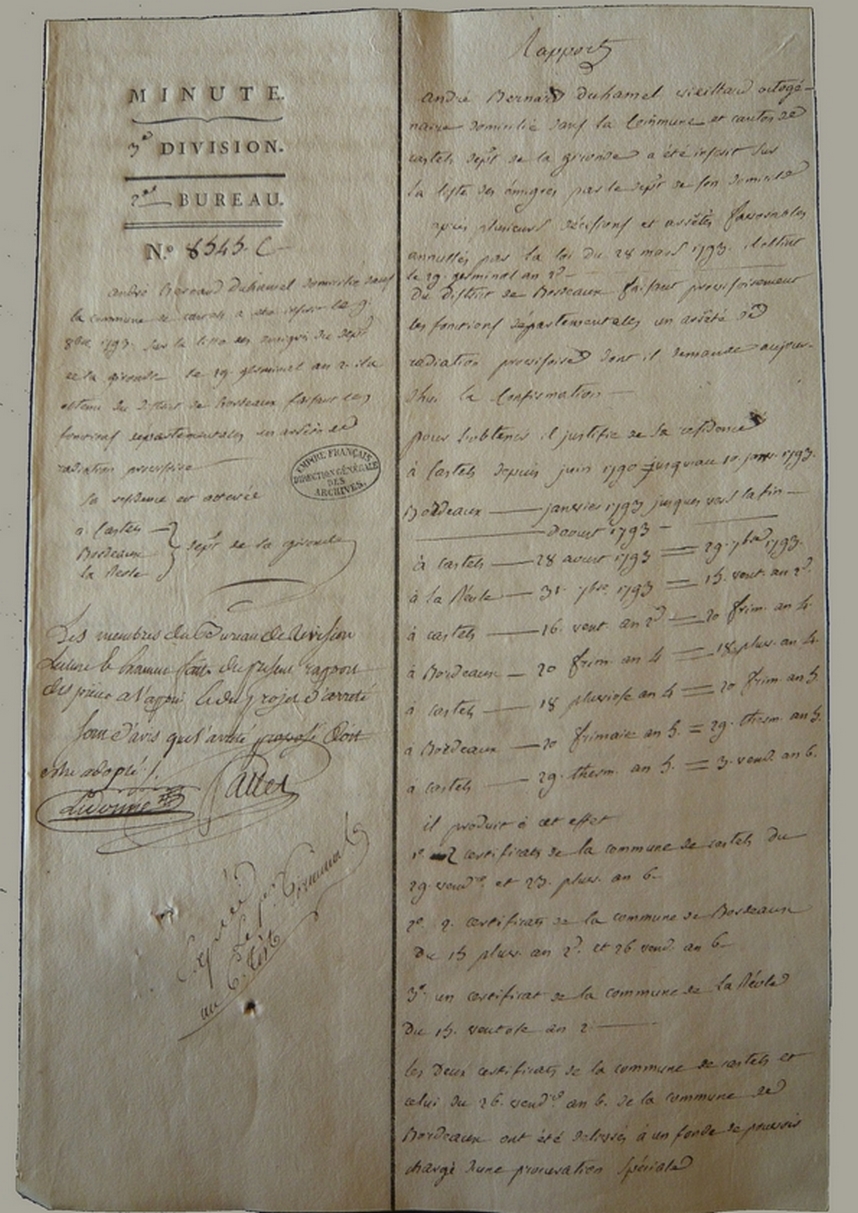 MINUTE.
3e DIVISION.
2me BUREAU.
N.o 8545. C
andré Bernard Duhamel domicilié dans
la commune de castets a été inscrit le 9.
8bre 1793. sur la liste des émigrés du dépt
de la gironde le 29 germinal an 2. il a
obtenu du district de Bordeaux faisant les
fonctions départementales un arrêté de
radiation provisoire
Sa résidence est attestée
a Castets
Bordeaux
la Réole
dépt de la gironde
EMPIRE FRANÇAIS
DIRECTION GÉNÉRALE
DES
ARCHIVES.
Les membres du Bureau de Révision
Lecture & Examen faits du présent rapport
des pièces à l'appui & du projet d'arrêté
Sont d'avis que l'arrêté proposé doit
être adopté /.
Expédié
le
au
Rapport
andré Bernard Duhamel vieillard octogé-
naire domicilié dans la Commune et canton de
castets dépt de la gironde a été inscrit sur
la liste des émigrés par le dépt de son domicile
après plusieurs décisions et arrêtés favorables
annullés par la loi du 28 mars 1793. il obtint
le 29. germinal an 2d
du district de Bordeaux faisant provisoirement
les fonctions départementales un arrêté de
radiation provisoire dont il demande aujour-
d'hui la Confirmation
pour l'obtenir il justifie de sa résidence
à Castets depuis juin 1790 jusqu'au 10. janv. 1793.
Bordeaux — janvier 1793 jusques vers la fin
d'aoust 1793 -
à Castets — 28 aoust 1793 = 29. 7bre 1793.
à la Réole — 31. 7bre 1793 = 15. vent. an 2d.
à castets — 16. vent. an 2d = 20 frim. an 4.
à Bordeaux — 20 frim. an 4 = 18 pluv. an 4.
à castets — 18 pluviose an 4 = 20 frim. an 5.
a Bordeaux — 20 frimaire an 5. = 29. therm. an 5.
a castets — 29. therm. an 5. = 3. vend. an 6.
il produit à cet effet
1o 2 certificats de la commune de castets du
29 vendre et 23. pluv. an 6
2o. 2. certificats de la commune de Bordeaux
Du 15 pluv. an 2d. et 26 vend. an 6
3o un certificat de la commune de La Réole
du 15. ventose an 2
les deux certificats de la commune de castets et
celui du 26. vendre an 6. de la commune de
Bordeaux ont été délivrés à un fondé de pouvoir
chargé d'une procuration spéciale